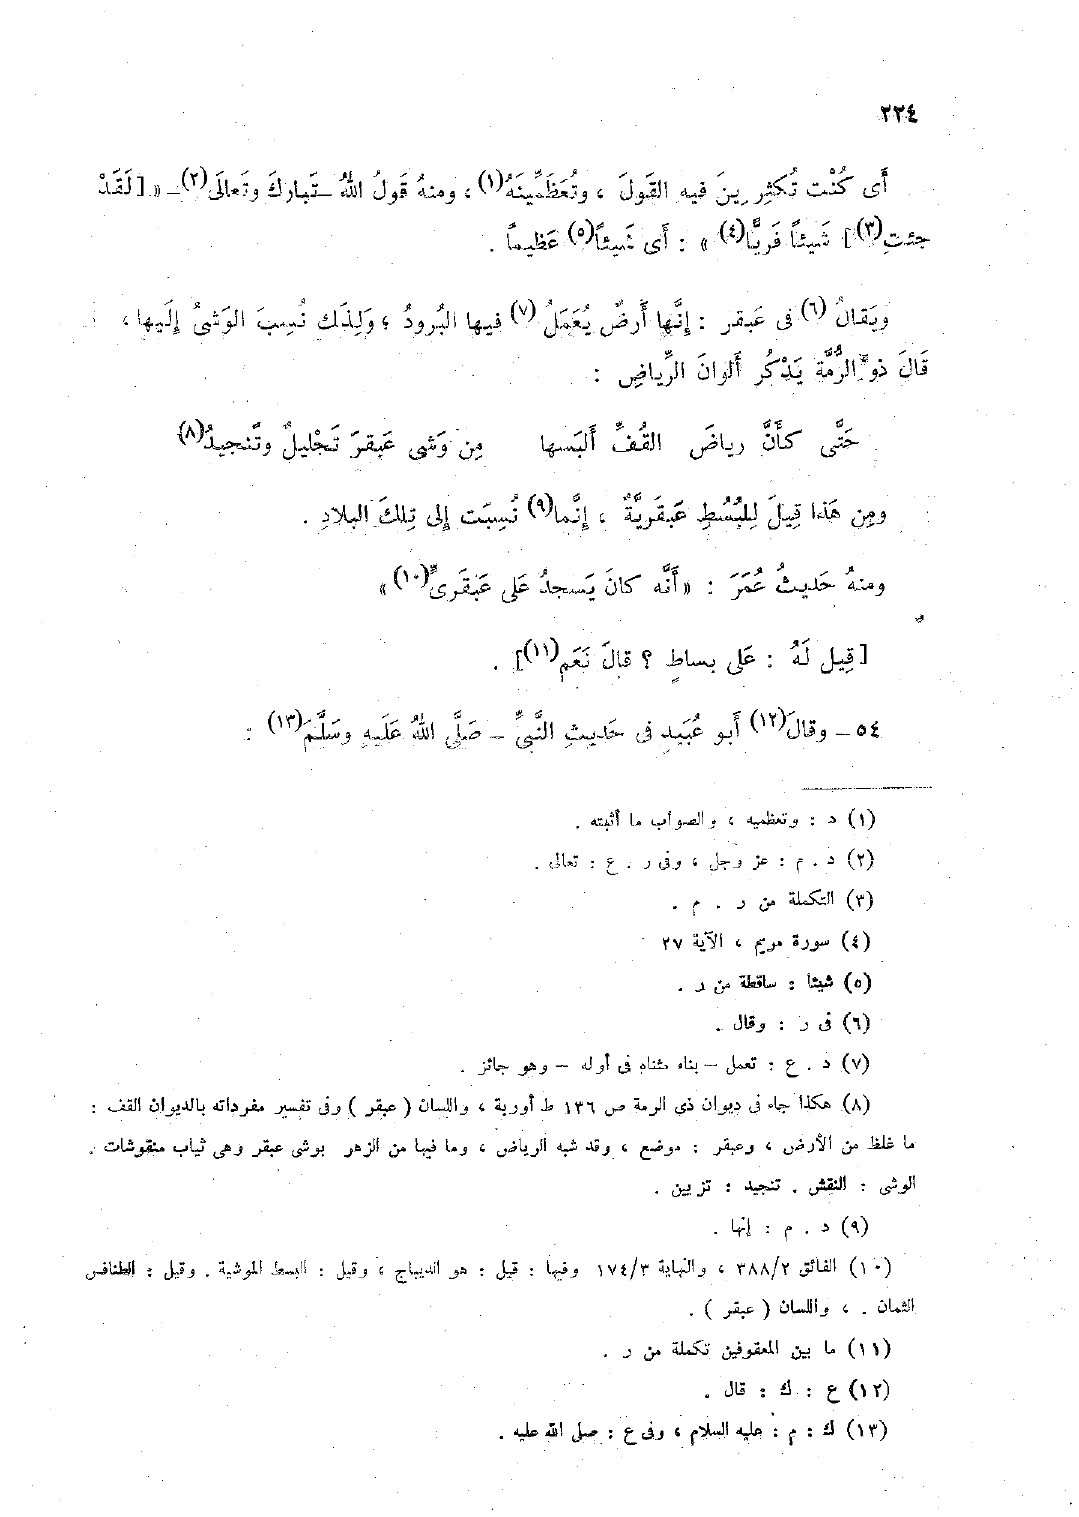 ٢٢٤
أَى كُنْت تُكثِرِينَ فيه القَولَ ، وتُعَظِّمِينَهُ(١) ، ومنهُ قَولُ اللهُ تَبارِكَ وتَعالَى(٢) – « [ لَقَدْ
جئتِ(٣) ] شَيئاً فَريًّا(٤) » : أَى شَيئاً(٥) عَظيماً .
ويَقالُ(٦) فى عَبقر : إنَّها أَرضٌ يُعَمَلُ(٧) فيها البُرودُ ؛ وَلِذَلك نُسِبَ الوَشىُ إلَيها ،
قَالَ ذو الرُّمَّة يَذكُر أَلوانَ الرِّياضِ :
حَتَّى كأَنَّ رياضَ القُفِّ أَلبَسها مِن وَشى عَبقرَ تَجْليلٌ وتَنجيدُ(٨)
ومِن هَذا قِيلَ لِلبُسُطِ عَبقريَّةٌ ، إنَّما(٩) نُسِبَت إلى تِلكَ البلادِ .
ومنهُ حَديثُ عُمَرَ : « أَنَّه كانَ يَسجدُ عَلى عَبقَرىٍّ(١٠) »
[ قِيل لَهُ : عَلى بساطٍ ؟ قالَ نَعَم(١١) ] .
٥٤ – وقالَ(١٢) أَبو عُبَيد فى حَديثِ النَّبىِّ – صَلَّى اللهُ عَلَيهِ وسَلَّمَ(١٣) :
(١) د : وتعظميه ، والصواب ما أثبته .
(٢) د . م : عز وجل ، وفى ر . ع : تعالى .
(٣) التكملة من ر . م .
(٤) سورة مريم ، الآية ٢٧
(٥) شيئا : ساقطة من ر .
(٦) فى ر : وقال .
(٧) د . ع : تعمل – بناء مثناه فى أوله – وهو جائز .
(٨) هكذا جاء فى ديوان ذى الرمة ص ١٣٦ ط أوربة ، واللسان ( عبقر ) وفى تفسير مفرداته بالديوان القف :
ما غلظ من الأرض ، وعبقر : موضع ، وقد شبه الرياض ، وما فيها من الزهر بوشى عبقر وهى ثياب منقوشات .
الوشى : النقش . تنجيد : تزيين .
(٩) د . م : إنها .
(١٠) الفائق ٣٨٨/٢ ، والنهاية ١٧٤/٣ وفيها : قيل : هو الديباج ، وقيل : البسط الموشية . وقيل : الطنافس
الثمان . ، واللسان ( عبقر ) .
(١١) ما بين المعقوفين تكملة من ر .
(١٢) ع : ك : قال .
(١٣) ك : م : عليه السلام ، وفى ع : صلى الله عليه .